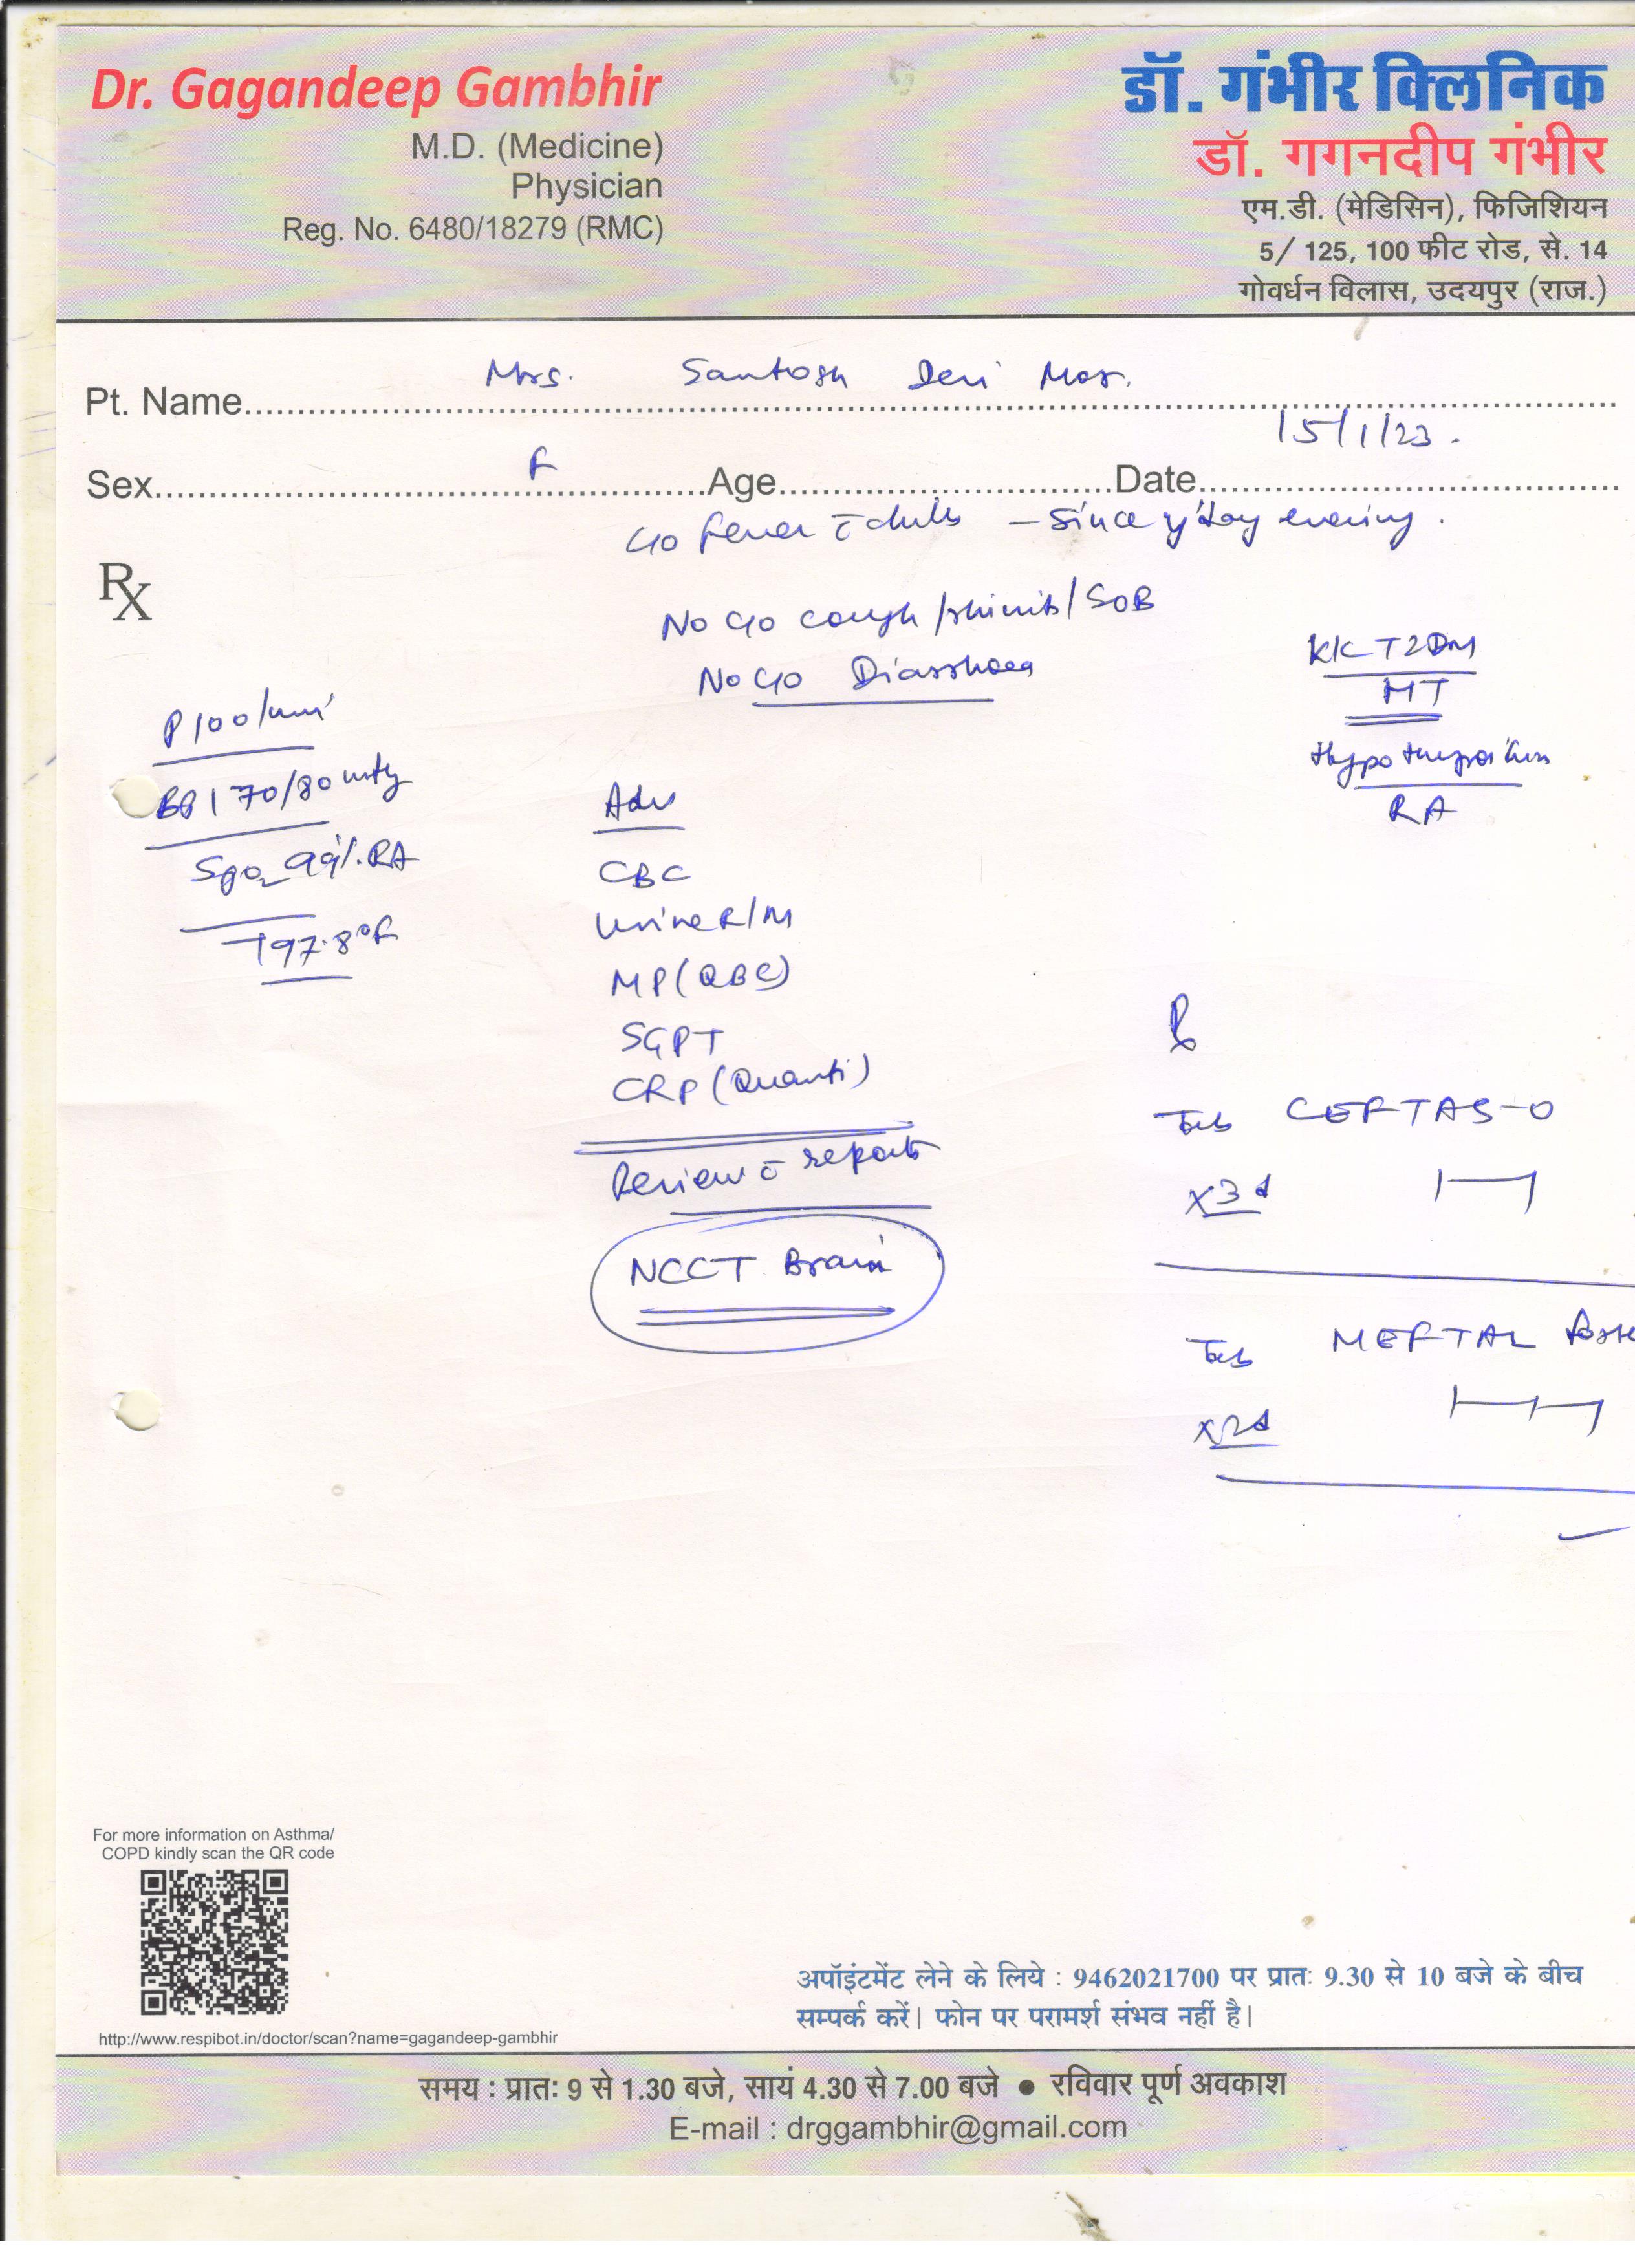 Dr. Gagandeep Gambhir
M.D. (Medicine)
Physician
Reg. No. 6480/18279 (RMC)
डॉ. गंभीर क्लिनिक
डॉ. गगनदीप गंभीर
एम.डी. (मेडिसिन), फिजिशियन
5/ 125, 100 फीट रोड, से. 14
गोवर्धन विलास, उदयपुर (राज.)
Pt. Name Mrs. Santosh Devi
Sex F Age Date 15/1/23.
c/o fever c̄ chills - since y'day evening.
Rx
No c/o cough/rhinitis/SOB
No c/o Diarrhoea
K/C T2DM
HT
Hypothyroidism
RA
P 100/min
BP 170/80 mmHg
SpO2 99%. RA
T 97.8°F
Adv
CBC
Urine R/M
MP (QBC)
SGPT
CRP (Quanti)
Review c̄ reports
NCCT Brain
Rx
Tab CEFTAS-O
x3d
Tab MEFTAL Forte
x2d
For more information on Asthma/
COPD kindly scan the QR code
http://www.respibot.in/doctor/scan?name=gagandeep-gambhir
अपॉइंटमेंट लेने के लिये : 9462021700 पर प्रातः 9.30 से 10 बजे के बीच
सम्पर्क करें। फोन पर परामर्श संभव नहीं है।
समय : प्रातः 9 से 1.30 बजे, सायं 4.30 से 7.00 बजे ● रविवार पूर्ण अवकाश
E-mail : drggambhir@gmail.com